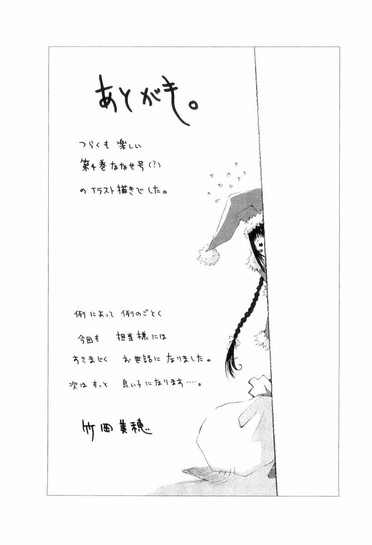 あとがき。
つらくも楽しい
第4巻ななせ号(?)
のイラスト描きでした。
例によって例のごとく
今回も担当様には
すさまじくお世話になりました。
次はもっと良い子になります…。
竹岡美穂